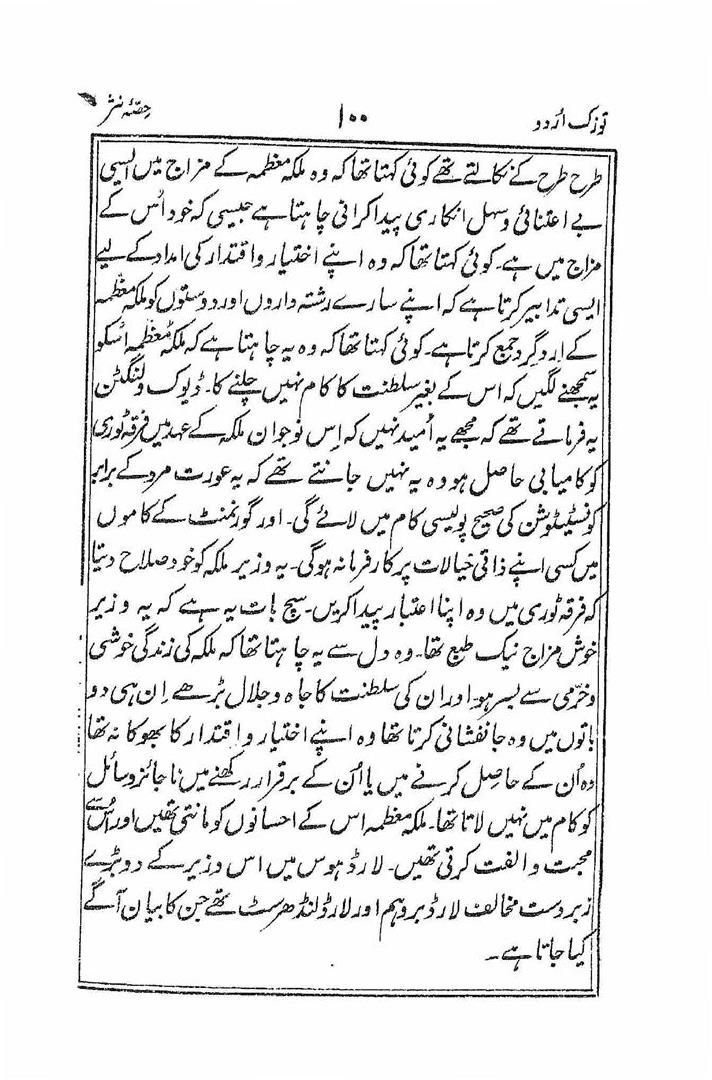 توزک اُردو ۱۰۰ حصّۂ نثر
طرح طرح کے نکالتے تھے کوئی کہتا تھا کہ وہ ملکہ معظمہ کے مزاج میں ایسی
بے اعتنائی و سہل انکاری پیدا کرانی چاہتا ہے جیسی کہ خود اُس کے
مزاج میں ہے۔ کوئی کہتا تھا کہ وہ اپنے اختیار و اقتدار کی امداد کے لیے
ایسی تدابیر کرتا ہے کہ اپنے سارے رشتہ داروں اور دوستوں کو ملکہ معظّمہ
کے اردگرد جمع کرتا ہے۔ کوئی کہتا تھا کہ وہ یہ چاہتا ہے کہ ملکہ مُعظّمہ اُسکو
یہ سمجھنے لگیں کہ اس کے بغیر سلطنت کا کام نہیں چلنے کا۔ ڈیوک ولنگٹن
یہ فرماتے تھے کہ مجھے یہ اُمید نہیں کہ اِس نوجوان ملکہ کے عہد میں فرقہ ٹوری
کو کامیابی حاصل ہو وہ یہ نہیں جانتے تھے کہ یہ عورت مرد کے برابر
کونسٹیٹوشن کی صحیح پولیسی کام میں لائے گی۔ اور گورنمنٹ کے کاموں
میں کسی اپنے ذاتی خیالات پر کار فرما نہ ہوگی۔ یہ وزیر ملکہ کو خود صلاح دیتا
کہ فرقہ ٹوری میں وہ اپنا اعتبار پیدا کریں۔ سچ بات یہ ہے کہ یہ وزیر
خوش مزاج نیک طبع تھا۔ وہ دل سے یہ چاہتا تھا کہ ملکہ کی زندگی خوشی
و خرّمی سے بسر ہو اور ان کی سلطنت کا جاہ و جلال بڑھے اِن ہی دو
باتوں میں وہ جانفشانی کرتا تھا وہ اپنے اختیار و اقتدار کا بھوکا نہ تھا
وہ اُن کے حاصل کرنے میں یا اُن کے برقرار رکھنے میں ناجائز وسائل
کو کام میں نہیں لاتا تھا۔ ملکہ معظمہ اس کے احسانوں کو مانتی تھیں اور اُس سے
محبت و الفت کرتی تھیں۔ لارڈ ہوس میں اس وزیر کے دو بڑے
زبردست مخالف لارڈ بروہم اور لارڈ لنڈھرسٹ تھے جن کا بیان آگے
کیا جاتا ہے۔